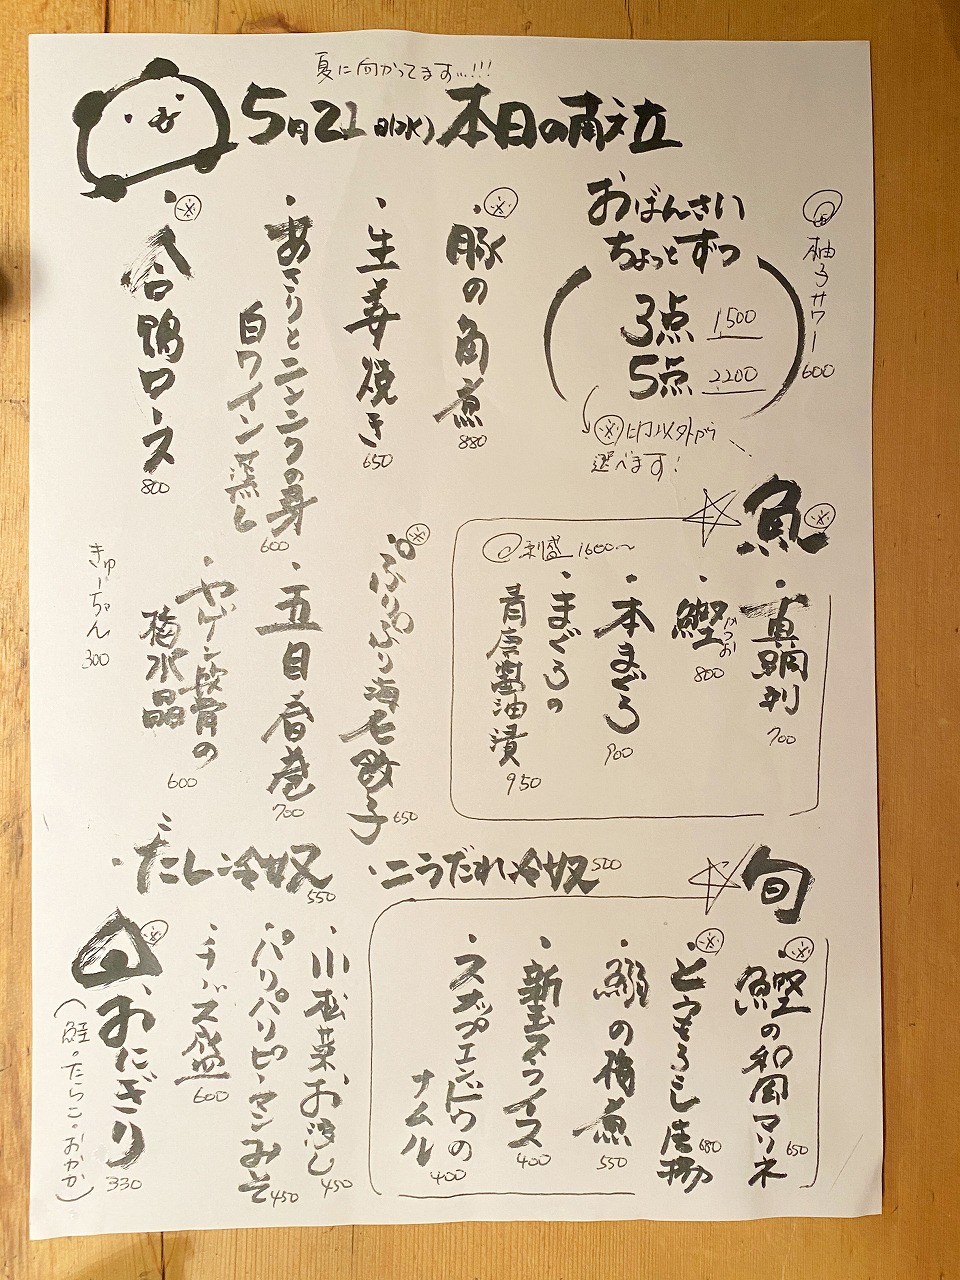 夏に向かってます…!!!
5月21日(水)本日の献立
柚子サワー
600
おばんさい
ちょっとずつ
3点 1500
5点 2200
※印以外から
選べます!
※
・豚の角煮
880
・生姜焼き
650
・あさりとニンニクの芽
白ワイン蒸し
600
※
・合鴨ロース
800
☆魚※
刺盛 1600〜
・真鯛刺
700
・鰹
かつお
800
・本まぐろ
900
・まぐろの
青唐醤油漬
950
※
・ぷりぷり海老餃子
650
・五目春巻
700
・ヤゲン軟骨の
梅水晶
600
きゅーちゃん
300
・だし冷奴
550
・ニラだれ冷奴 500
☆旬
※
・鰹の和風マリネ
650
※
・とうもろこし唐揚
680
・鰯の梅煮
550
・新玉スライス
400
・スナップエンドウの
ナムル
400
・小松菜お浸し
450
・パリパリピーマンみそ
450
・チーズ盛
600
※
・おにぎり
330
(鮭・たらこ・おかか)